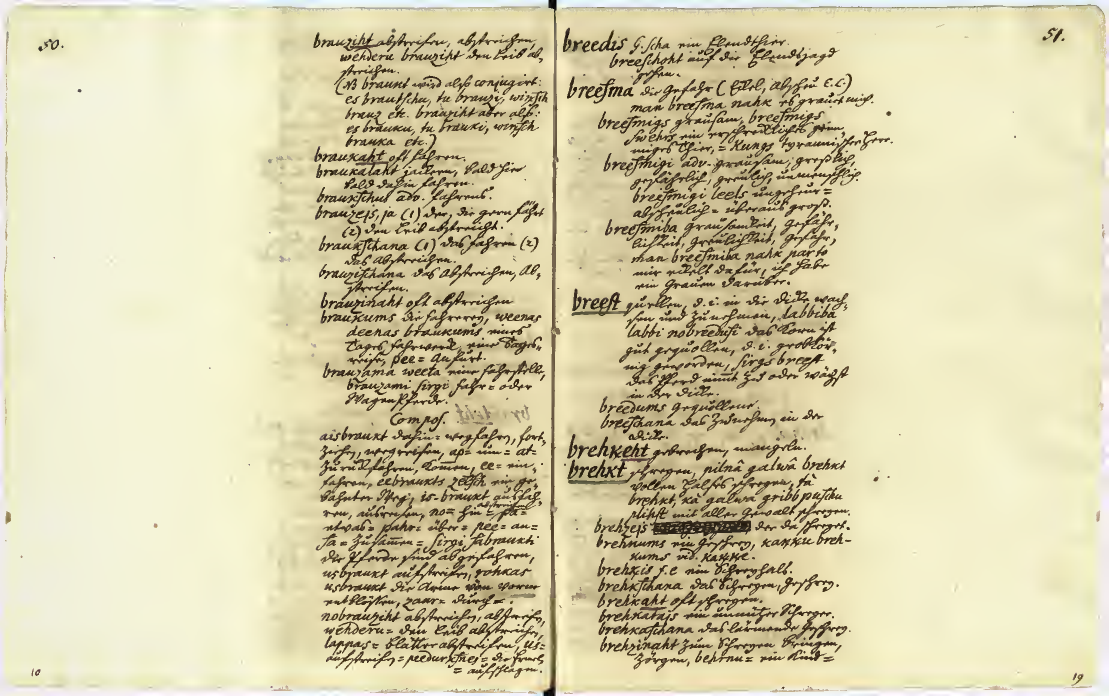 50.
brauziht abstreifen, abstreichen,
wehderu brauziht den Leib ab,
streichen.
(NB braukt wird also conjugirt:
es brautschu, tu brauzi, winsch
brauz etc. brauziht aber also:
es brauku, tu brauki, winsch
brauka etc.)
braukaht oft fahren.
braukalaht, bald hier
bald dahin fahren.
braukschus adv. fahrend.
brauzejs, ja (1) der, die gern fährt
(2) den Leib abstreicht.
braukschana (1) das fahren (2)
das abstreichen.
brauzischana das Abstreichen, Ab,
streifen.
brauzinaht oft abstreichen
braukums die fahrerey, weenas
deenas braukums eines
Tages fahrwerk, eine Tages,
reise, pee= Anfurt.
brauzama weeta eine fahrstelle,
brauzami sirgi fahr= oder
Wagen Pferde.
Compos.
aisbraukt dahin= wegfahren, fort,
ziehen, wegreisen, ap= um= at=
zurückfahren, kommen, ee= ein,
fahren, eebraukts zelsch ein ge,
bahnter Weg, is-braukt ausfah,
ren, ausreisen, no= hin=
etwas= pahr= über= pee= an=
sa= zusammen= sirgi sabraukti
die Pferde sind abgefahren,
usbraukt aufstreifen, rohkas
usbraukt die Arme von vorne
entblößen, zaur= durch=
nobrauziht abstreichen, abstreifen,
wehderu= den Leib abstreichen,
lappas= blätter abstreifen, us=
aufstreifen= peedurknes= die Ermel
= aufschlagen.
10
51.
breedis G. scha ein Elendthier.
breeschoht auf die Elendsjagd
gehen.
breesma die Gefahr (Ekel, abscheu E.C.)
man breesma nahk es grauet mich.
breesmigs grausam, breesmigs
swehrs ein erschreckliches grim,
miges Thier, = Kungs tyrannischer Herr.
breesmigi adv. grausam, greßlich,
gefährlich, greulich unmenschlich.
breesmigi leels ungeheur=
abscheulich= überaus groß.
breesmiba grausamkeit, gefähr,
lichkeit, greulichkeit, gefahr,
man breesmiba nahk par to
mir ekelt dafür, ich habe
ein Grauen darüber.
breest quellen, d.i. in die dicke wach,
sen und zunehmen, labbiba
labbi nobreedusi das Korn ist
gut gequollen, d.i. grobkör,
nig geworden, sirgs breest
das Pferd nimt zu oder wächst
in der dicke.
breedums gequollene.
breeschana das Zunehmen in der
dicke.
brehkeht gebrechen, mangeln.
brehkt schreyen, pilnâ galwâ brehkt
vollen Halses schreyen, tà
brehkt kà galwa gribb puschu
plihst mit aller Gewalt schreyen.
brehzejs der da schreyet.
brehkums ein Geschrey, kakku breh-
kums vid. kakke.
brehkis f.e ein Schreyhals.
brehkschana das Schreyen, Geschrey.
brehkaht oft schreyen.
brehkatajs ein unnützer Schreyer.
brehkaschana das lärmende Geschrey.
brehzinaht zum Schreyen bringen,
zörgen, behrnu= ein Kind=
19